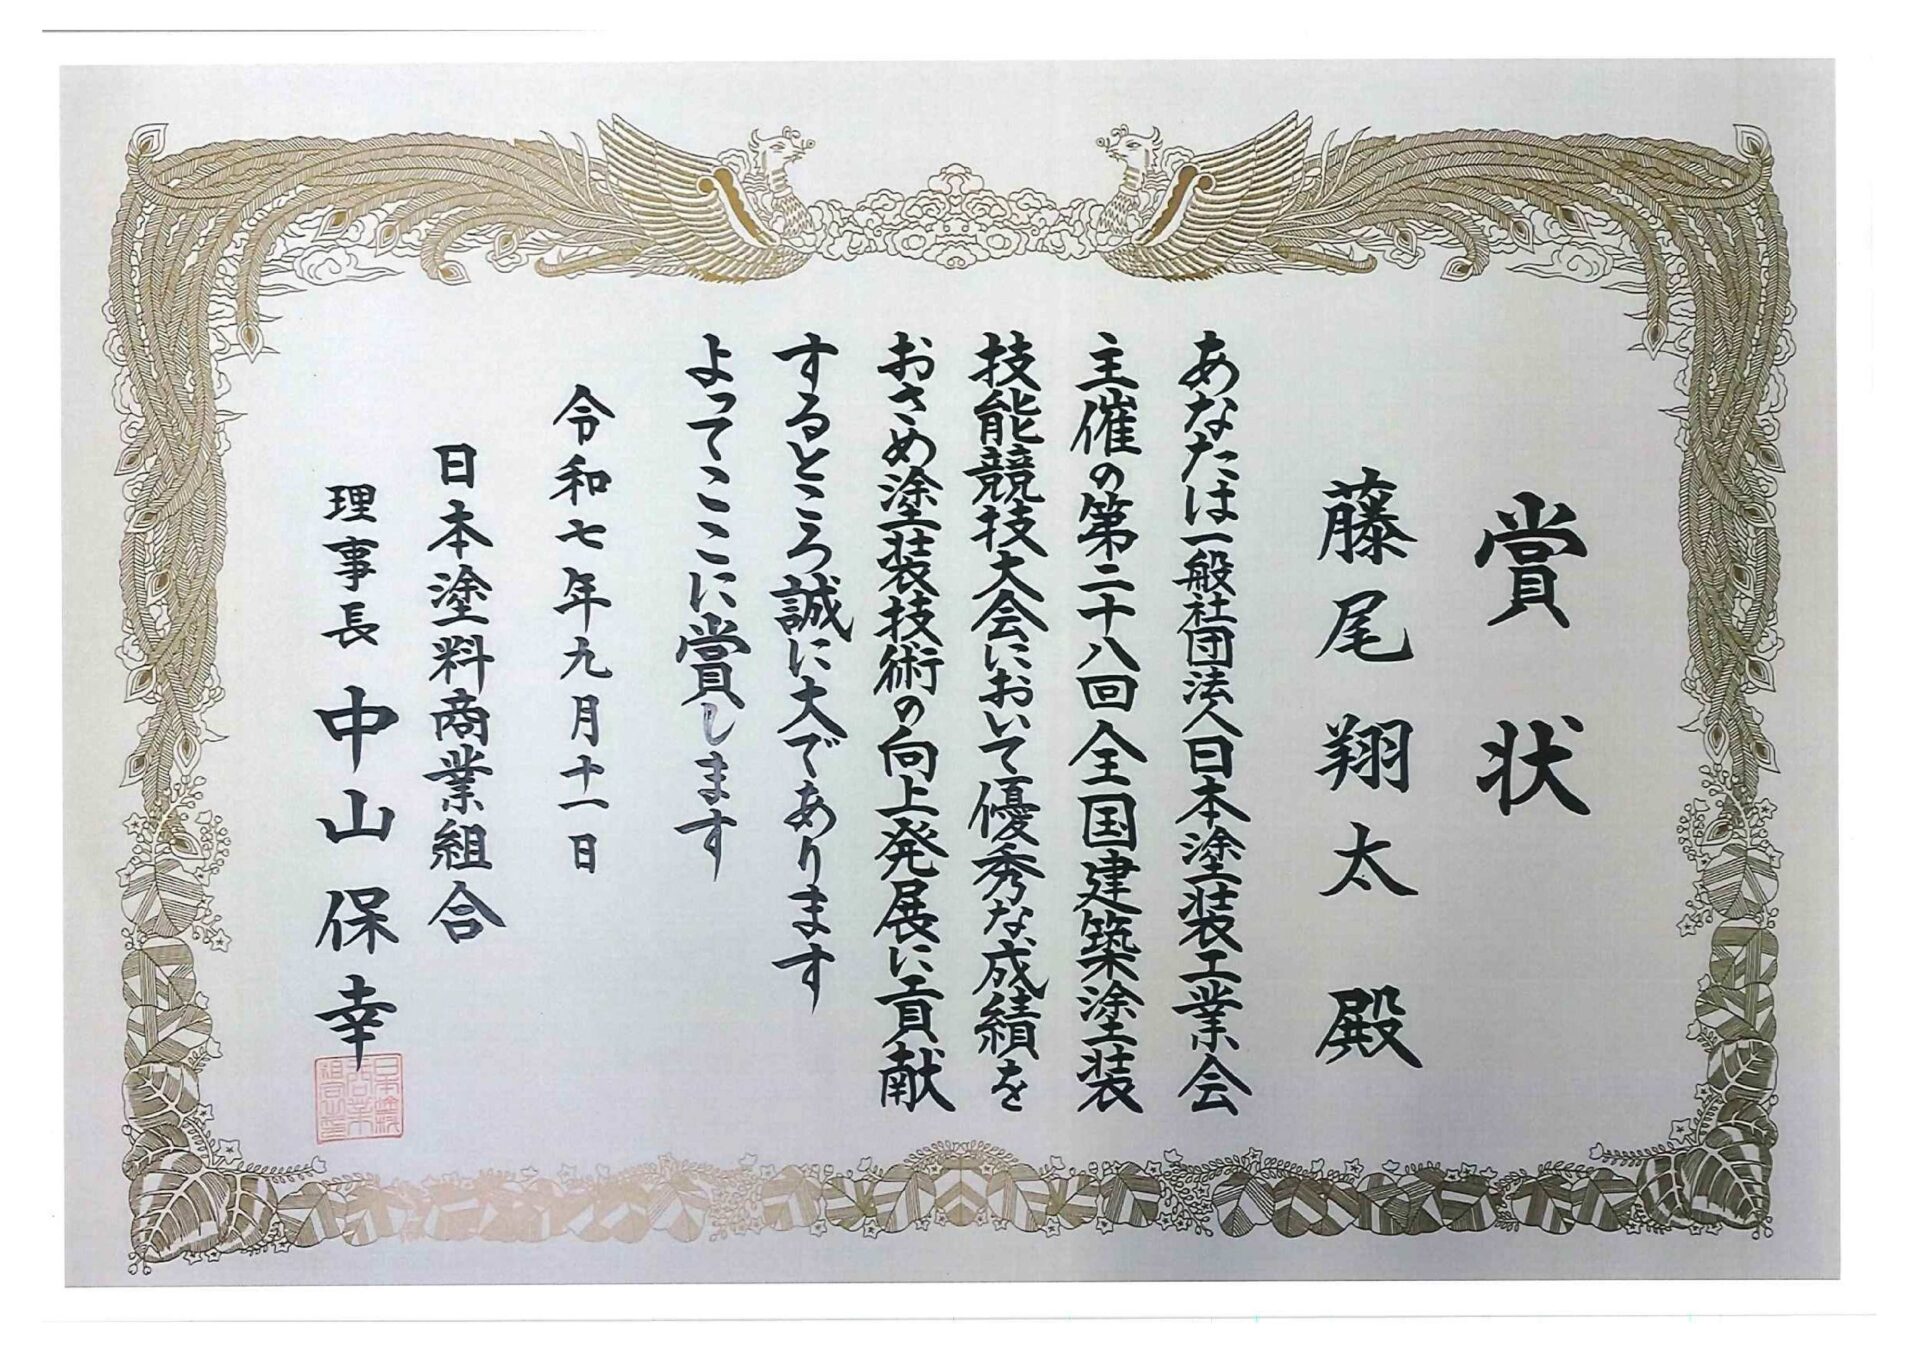 賞状
藤尾翔太 殿
あなたは一般社団法人日本塗装工業会
主催の第二十八回全国建築塗装
技能競技大会において優秀な成績を
おさめ塗装技術の向上発展に貢献
するところ誠に大であります
よってここに賞します
令和七年九月十一日
日本塗料商業組合
理事長 中山保幸